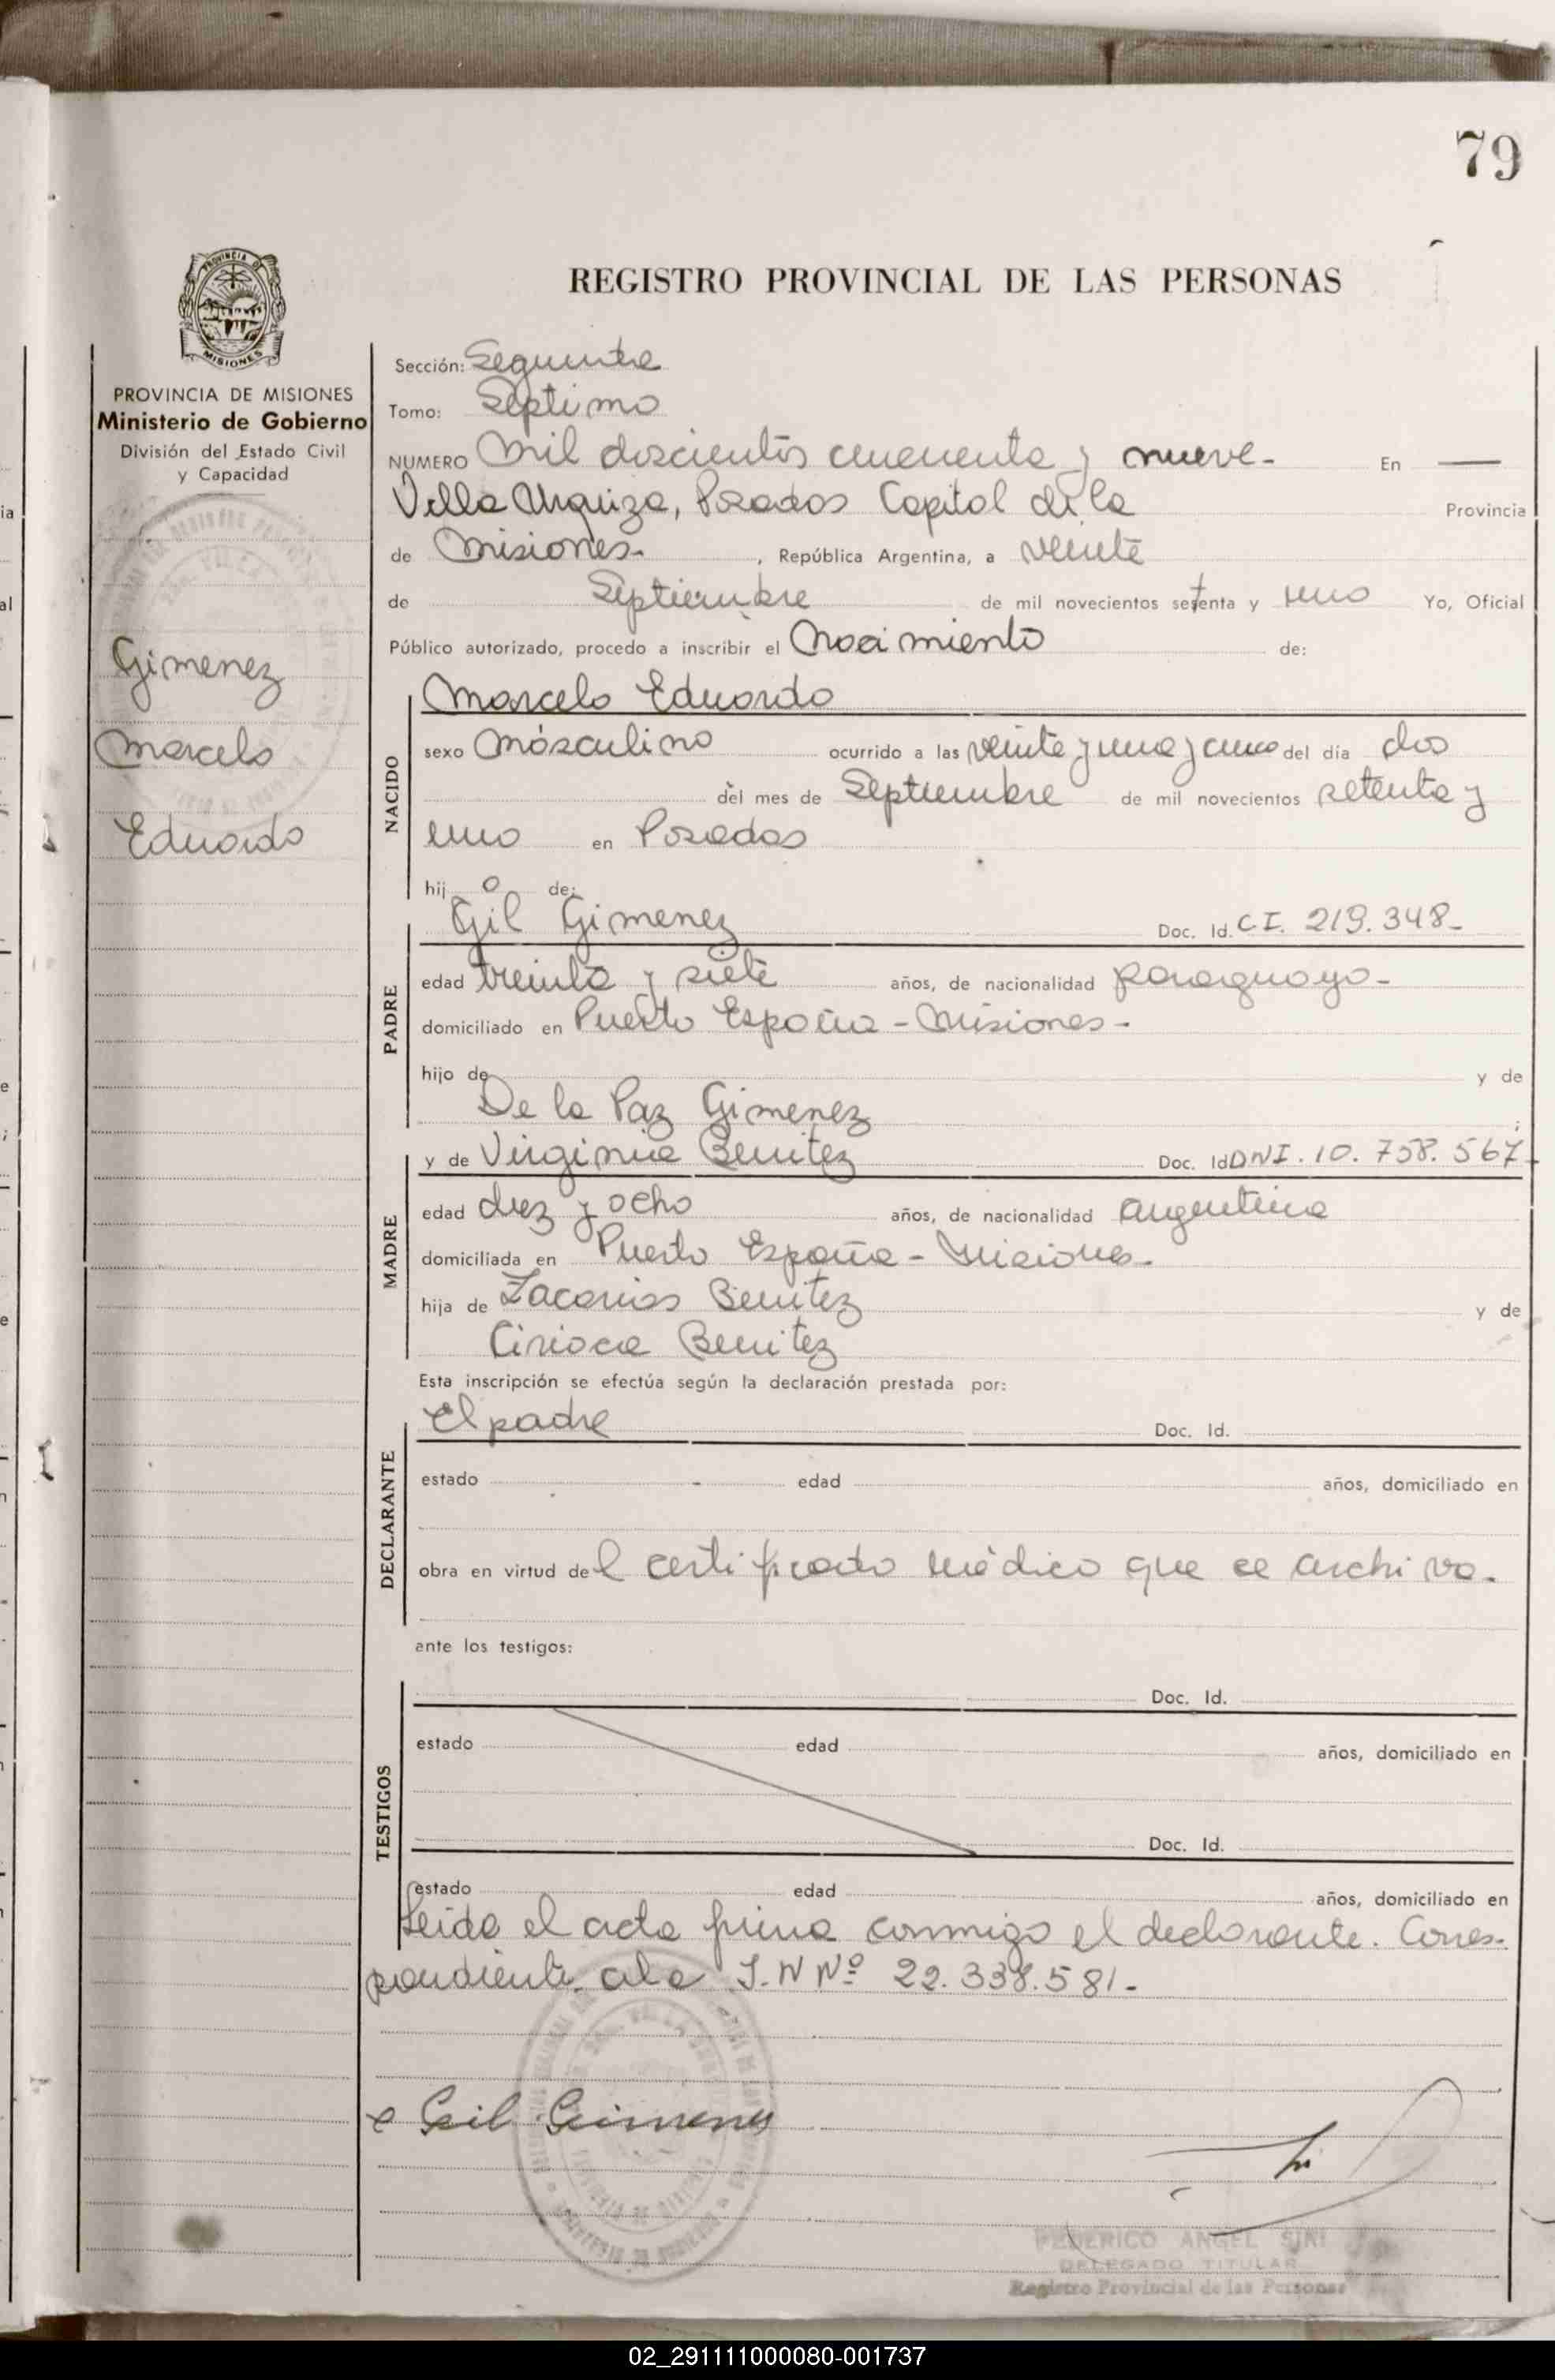 79
REGISTRO PROVINCIAL DE LAS PERSONAS
PROVINCIA DE MISIONES
Ministerio de Gobierno
División del Estado Civil
y Capacidad
Gimenez
Marcelo
Eduardo
Sección:
Tomo: Septimo
NUMERO Mil doscientos cincuenta y nueve- En —
Villa Urquiza, Posadas Capital de la Provincia
de Misiones- , República Argentina, a veinte
de Septiembre de mil novecientos setenta y uno Yo, Oficial
Público autorizado, procedo a inscribir el Nacimiento de:
NACIDO
Marcelo Eduardo
sexo Másculino ocurrido a las veinte y una y cinco del día dos
del mes de Septiembre de mil novecientos setenta y
uno en Posadas
hijo de:
PADRE
Gil Gimenez Doc. Id. C.I. 219.348-
edad treinta y siete años, de nacionalidad paraguayo-
domiciliado en Puerto España - Misiones-
hijo de y de
De la Paz Gimenez ;
MADRE
y de Virginia Benitez Doc. Id DNI. 10. 758. 567-
edad diez y ocho años, de nacionalidad argentina
domiciliada en Puerto España - Misiones-
hija de Zacarias Benitez y de
Ciriaca Benitez
Esta inscripción se efectúa según la declaración prestada por:
DECLARANTE
El padre Doc. Id.
estado - edad años, domiciliado en
obra en virtud del certificado médico que se archiva.
ante los testigos:
TESTIGOS
Doc. Id.
estado edad años, domiciliado en
Doc. Id.
estado edad años, domiciliado en
Leida el acta firma conmigo el declarante. Corres-
pondiente a la I.N Nº 22.338.581-
Gil Gimenez
FEDERICO ANGEL SINI
DELEGADO TITULAR
Registro Provincial de las Personas
02_291111000080-001737